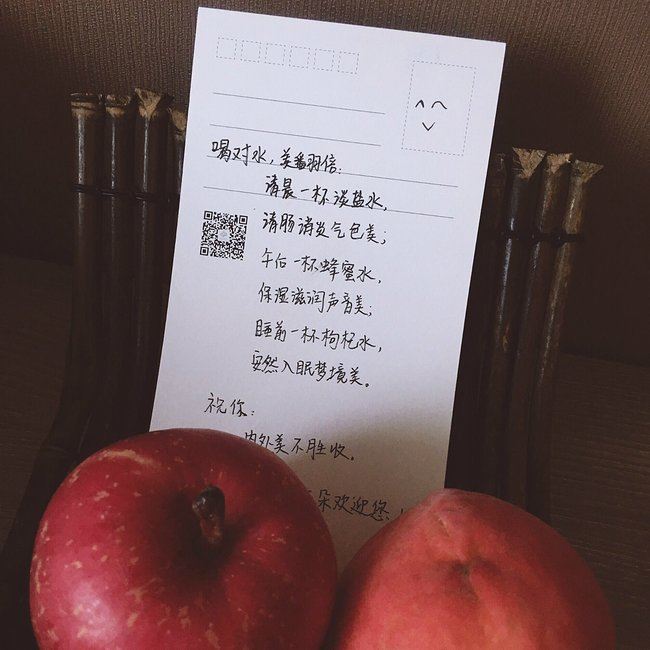 喝对水，美番羽倍：
清晨一杯淡盐水，
清肠消炎气色美；
午后一杯蜂蜜水，
保湿滋润声音美；
睡前一杯枸杞水，
安然入眠梦境美。
祝你：
内外美不胜收。
朵欢迎您！